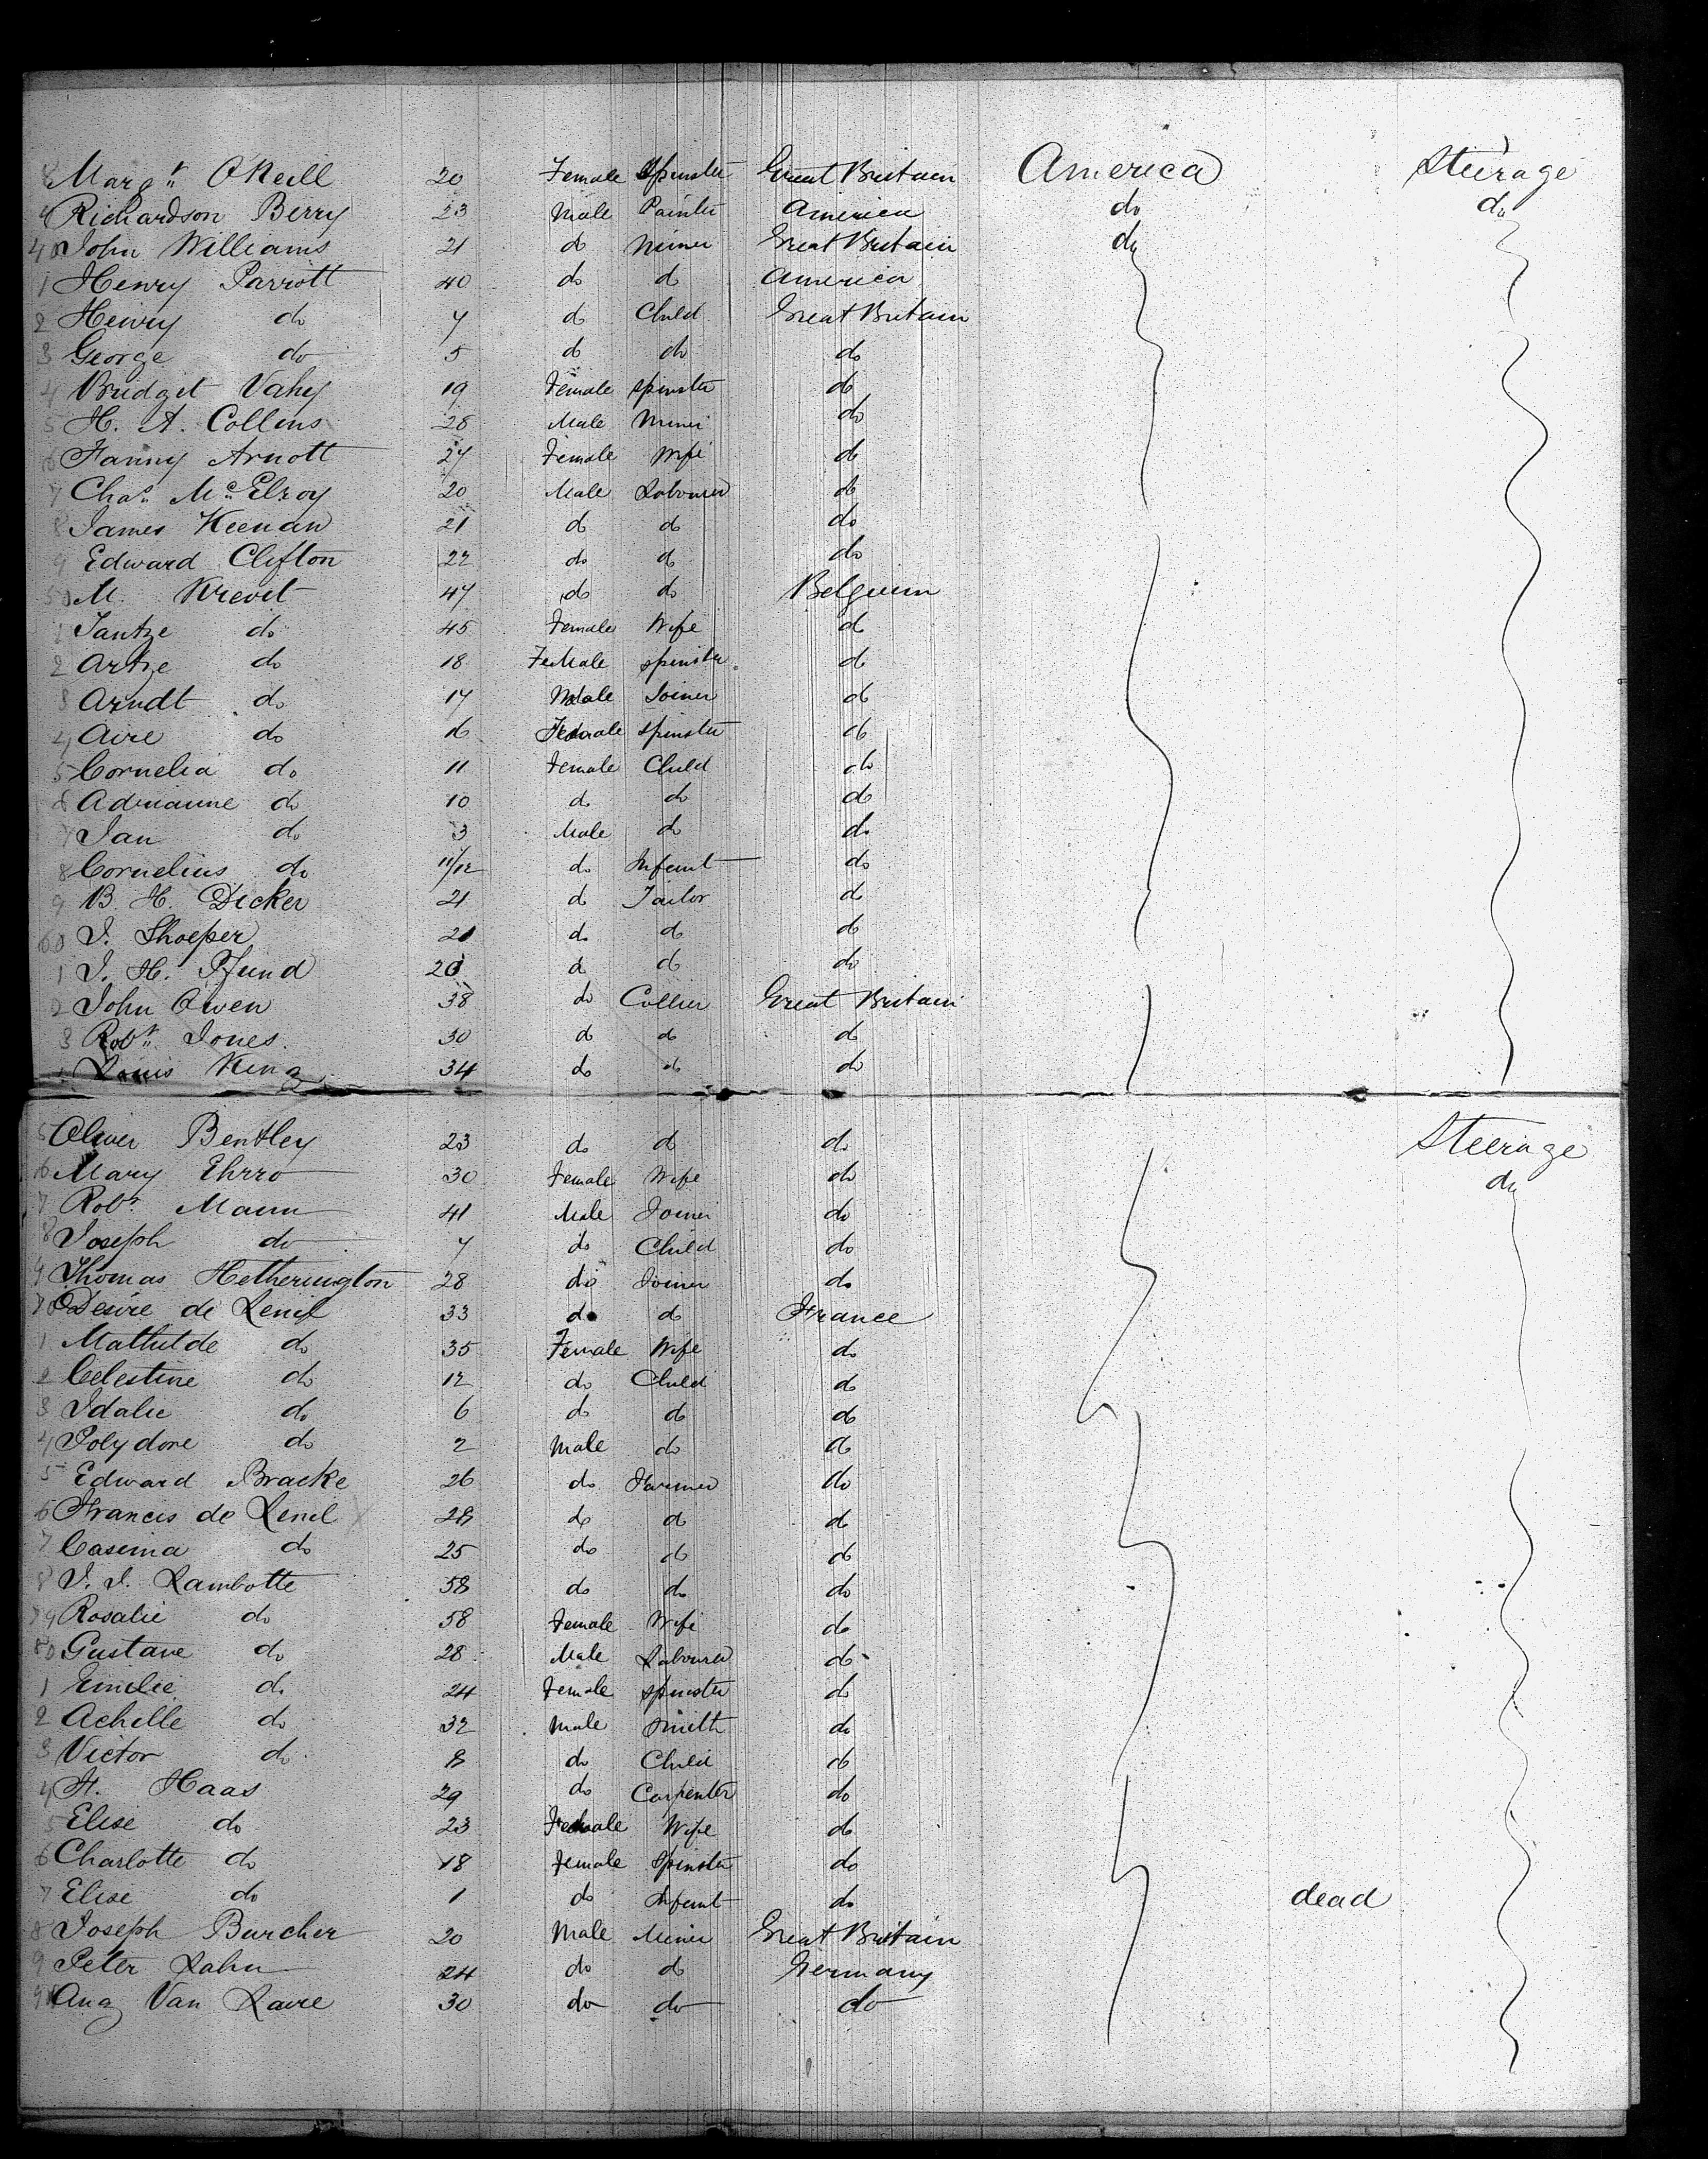 8 Margt O'Neill 20 Female Spinster Great Britain America Steerage
9 Richardson Berry 23 Male Painter America do do
40 John Williams 21 do Miner Great Britain do
1 Henry Parrott 40 do do America
2 Henry do 7 do Child Great Britain
3 George do 5 do do do
4 Bridget Vahey 19 Female Spinster do
5 H. A. Collins 28 Male Miner do
6 Fanny Arnott 27 Female Wife do
7 Chas McElroy 20 Male Labourer do
8 James Keenan 21 do do do
9 Edward Clifton 22 do do do
50 M. Krevet 47 do do Belgium
1 Tantze do 45 Female Wife do
2 Artze do 18 Female Spinster do
3 Arndt do 17 Male Joiner do
4 Aire do 16 Female Spinster do
5 Cornelia do 11 Female Child do
6 Adrianne do 10 do do do
7 Jan do 3 Male do do
8 Cornelius do 11/12 do Infant do
9 B. H. Dicker 21 do Tailor do
60 J. Shoeper 21 do do do
1 J. H. Pfund 20 do do do
2 John Owen 38 do Collier Great Britain
3 Robt Jones 30 do do do
Louis King 34 do do do
5 Oliver Bentley 23 do do do Steerage
6 Mary Ehrro 30 Female Wife do do
7 Robt Mann 41 Male Joiner do
8 Joseph do 7 do Child do
9 Thomas Hetherington 28 do Joiner do
70 Desire de Lenil 33 do do France
1 Mathilde do 35 Female Wife do
2 Celestine do 12 do Child do
3 Idalie do 6 do do do
4 Polydore do 2 Male do do
5 Edward Bracke 26 do Farmer do
6 Francis de Lenil 28 do do do
7 Casema do 25 do do do
8 J. J. Lambotte 58 do do do
79 Rosalie do 58 Female Wife do
80 Gustave do 28 Male Labourer do
1 Emilie do 24 Female Spinster do
2 Achille do 32 Male Smith do
3 Victor do 8 do Child do
4 H. Haas 29 do Carpenter do
5 Elise do 23 Female Wife do
6 Charlotte do 18 Female Spinster do
7 Elise do 1 do Infant do dead
8 Joseph Burcher 20 Male Miner Great Britain
9 Peter Lahn 24 do do Germany
90 Aug Van Laire 30 do do do